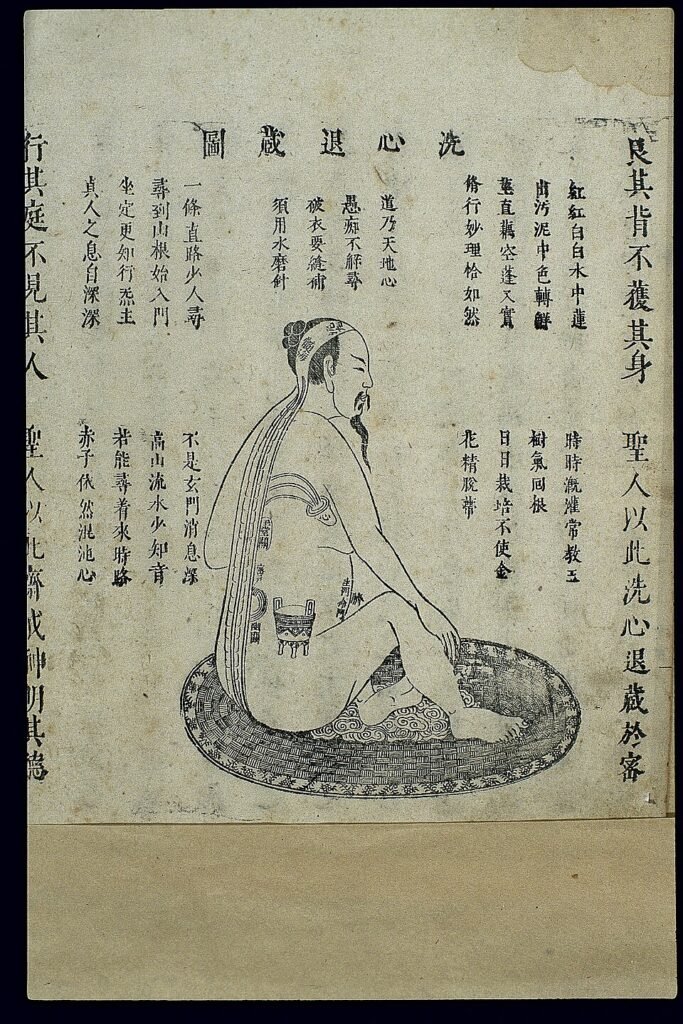 洗心退藏圖
艮其背不獲其身
聖人以此洗心退藏於密
紅紅白白水中蓮
出污泥中色轉鮮
莖直藕空蓬又實
脩行妙理恰如然
道乃天地心
愚痴不解尋
破衣要縫補
須用水磨針
一條直路少人尋
尋到山根始入門
坐定更知行炁主
真人之息自深深
時時溉灌常教玉
樹氣回根
日日栽培不使金
花精脫蒂
不是玄門消息深
高山流水少知音
若能尋着來時路
赤子依然混沌心
行其庭不見其人
聖人以此齋戒神明其德